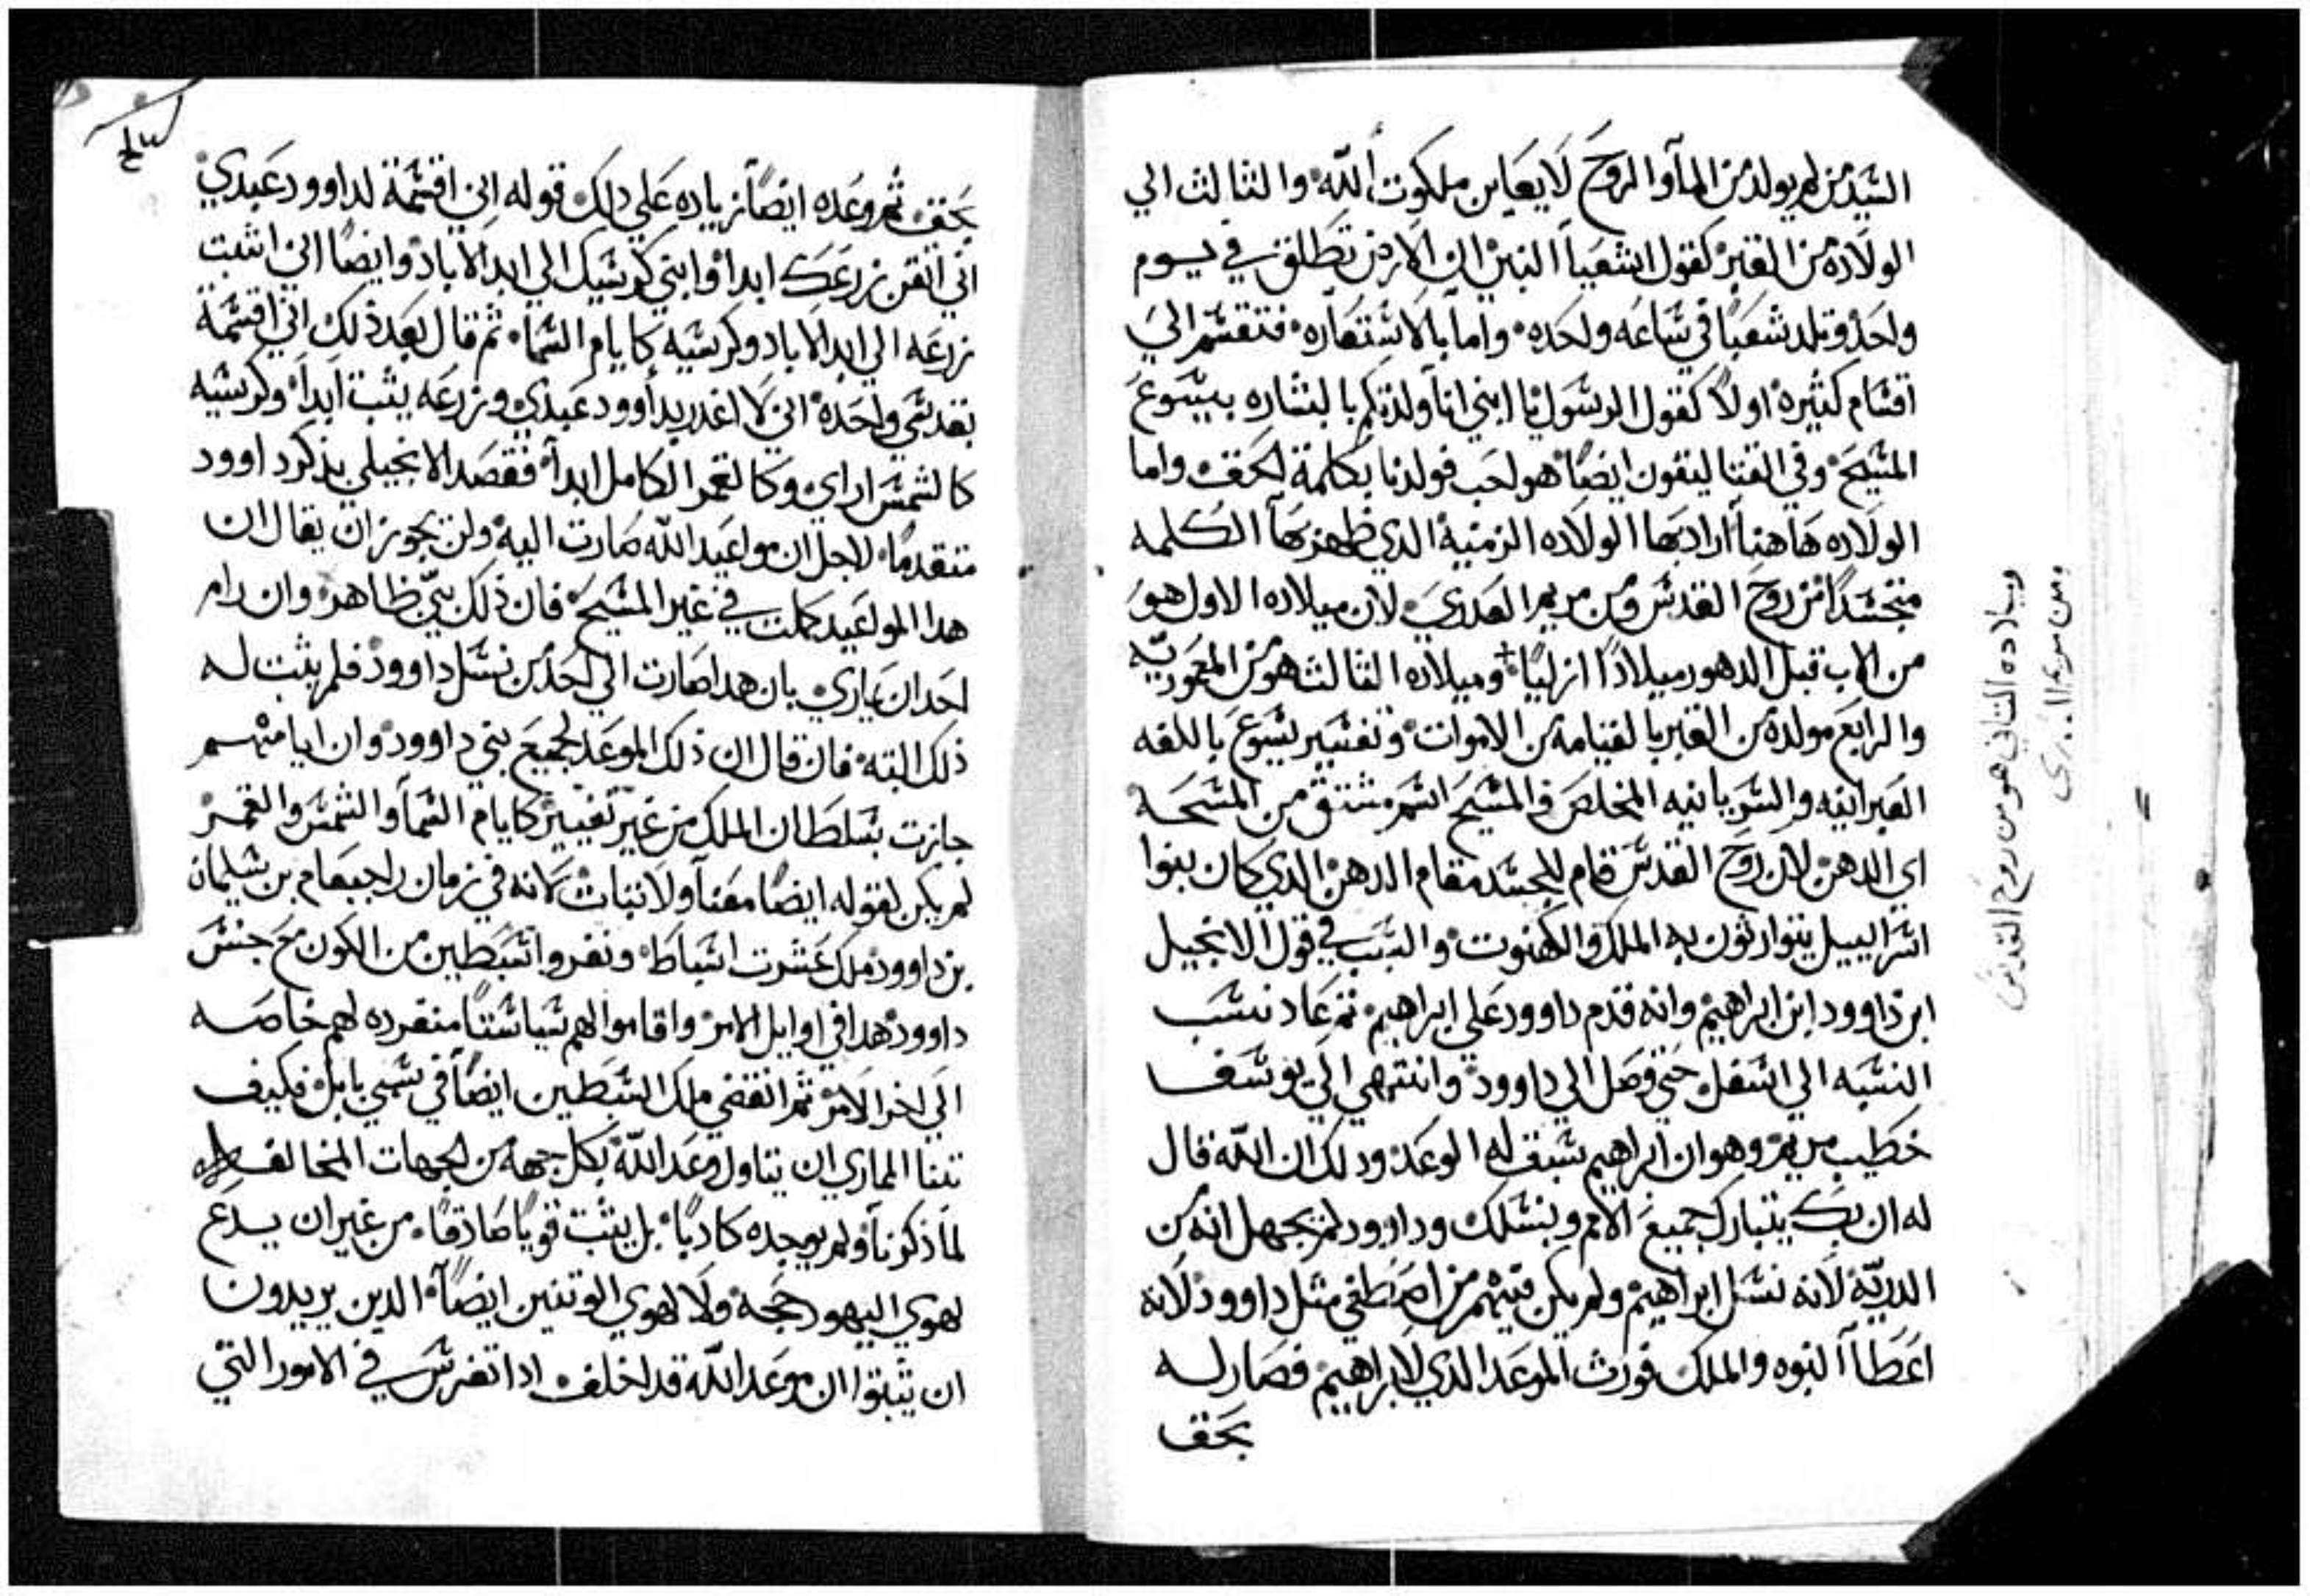 السيد من لم يولد من المآ والروح لا يعاين ملكوت الله والثالث الي
الولاده من القبر كقول اشعيا النبي ان الارض تطلق في يوم
واحد وتلد شعبًا في ساعه واحده واما بالاستعاره فتقسم الي
اقسام كثيره اولاً كقول الرسول يا ابني انا ولدتكم بالبشاره بيسوع
المسيح وفي القتاليقون ايضًا هو احب فولدنا بكلمة الحق واما
الولاده هاهنا اراد بها الولاده الزمنية الدي ظهر بها الكلمه
متجسدًا من روح القدس ومن مريم العدري لان ميلاده الاول هو
من الاب قبل الدهور ميلادًا ازليًا وميلاده الثالث هو من المعموديّه
والرابع مولده من القبر بالقيامة من الاموات وتفسير يسوع باللغه
العبرانيه والسريانيه المخلص والمسيح اسم مشتق من المسحه
اي الدهن لان روح القدس قام للجسد مقام الدهن الدي كان بنوا
اسراييل يتوارثون به الملك والكهنوت والسبب في قول الانجيل
ابن داوود ابن ابراهيم وانه قدم داوود علي ابراهيم ثم عاد نسب
النسبه الي اسفل حتي وصل الي داوود وانتهي الي يوسف
خطيب مريم وهو ان ابراهيم سبق له الوعد ودلك ان الله قال
له ان بك يتبارك جميع الامم وبنسلك وداوود لم يجهل انه من
الدريّة لانه نسل ابراهيم ولم يكن فيهم من اصطفي مثل داوود لانه
اعطاا النبوه والملك فورث الموعد الدي لابراهيم فصار له
بحق
وميلاده التاني هو من روح القدس
ومن مريم
بحق ثم وعده ايضًا زياده علي دلك قوله اني اقسمة لداوود عبدي
اني اتقن زرعك ابدا وابني كرسيك الي ابد الاباد وايضًا اني اثبت
زرعه الي ابد الاباد وكرسيه كايام السما ثم قال بعد ذلك اني اقسمة
بقدسي واحدة اني لا اغدر بداوود عبدي وزرعه يثبت ابدا وكرسيه
كالشمس ازاي وكالقمر الكامل ابدآ فقصد الانجيلي بذكر داوود
متقدمًا لاجل ان مواعيد الله صارت اليه ولن يجوز ان يقال ان
هدا المواعيد كملت في غير المسيح فان ذلك بيّ ظاهر وان رام
احد ان يماري بان هدا صارت الي احد من نسل داوود فلم يثبت له
ذلك البته فان قال ان ذلك الموعد لجميع بني داوود وان ايامهم
جازت بسلطان الملك من غير تغيير كايام السمآ والشمس والقمر
لم يكن لقوله ايضًا معنآ ولا ثبات لانه في زمان راجبعام بن سليمان
بن داوود ملك عشرت اسباط ونفروا السبطين من الكون مع جنس
داوود هدا في اوايل الامر واقاموا لهم سياستًا منفرده لهم خاصه
الي اخر الامر ثم انقضي ملك السبطين ايضًا في سبي بابل فكيف
تهنا المماري ان يتاول وعد الله بكل جهه من الجهات المخالفه
لما ذكرنا ولم يوجده كادبًا بل يثبت قويًا صادقًا من غير ان يدع
لهوي اليهود حجه ولا لهوي الوتنين ايضًا الدين يريدون
ان يثبتوا ان موعد الله قد اخلف ادا تفرس في الامور التي